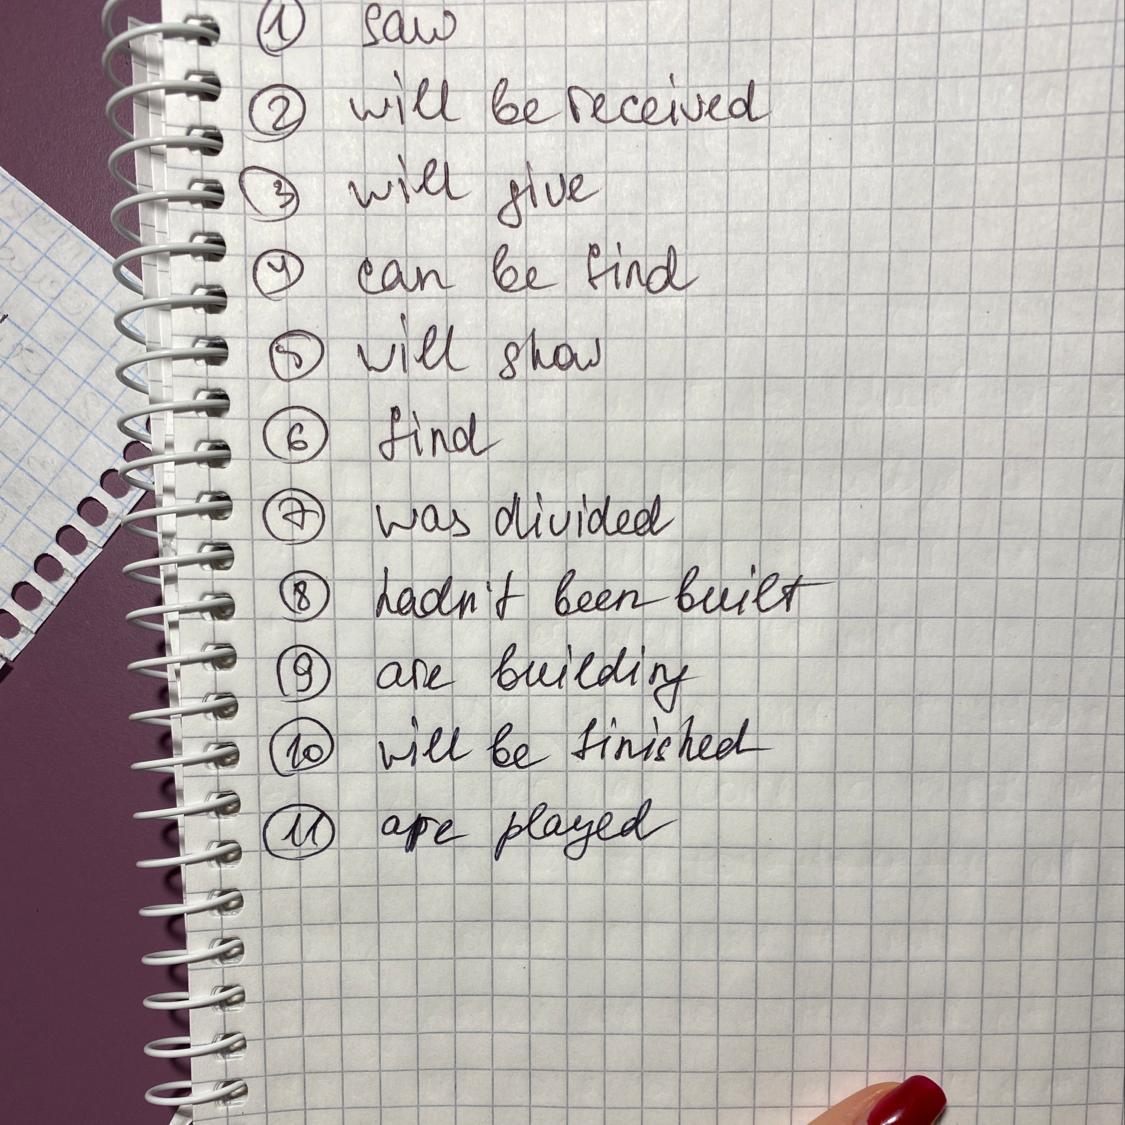 1 saw
2 will be received
3 will give
4 can be find
5 will show
6 find
7 was divided
8 hadn't been built
9 are building
10 will be finished
11 are played